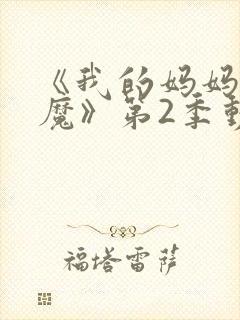 《我的妈妈
魔》第2季
福塔雷萨